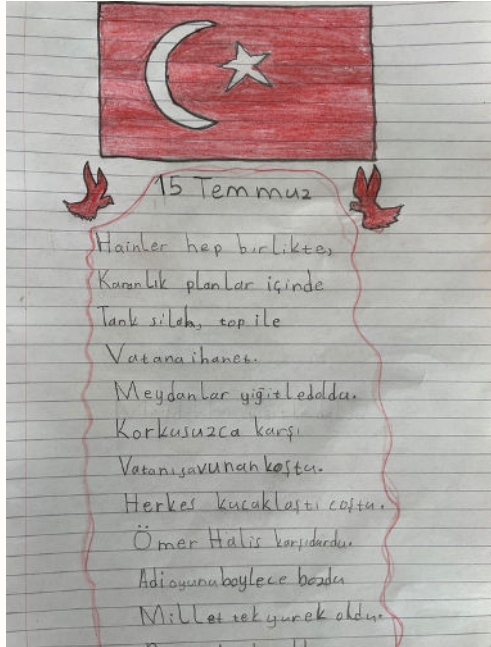 15 Temmuz
Hainler hep birlikte,
Karanlık planlar içinde
Tank silah, top ile
Vatana ihanet.
Meydanlar yiğitledoldu.
Korkusuzca karşı
Vatanısavunankoştu.
Herkes kucaklaştı coştu.
Ömer Halis karşıdurdu.
Adioyunuboylece bozdu
Millet tek yurek oldu.